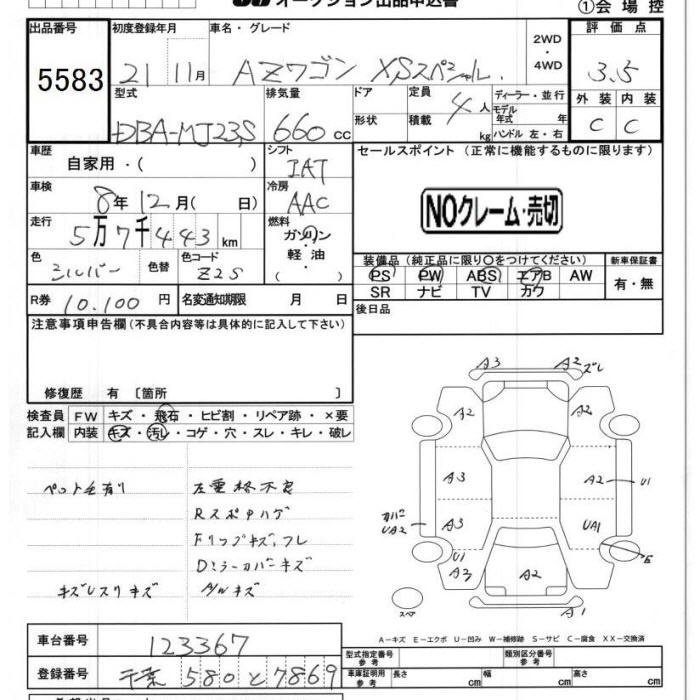 オークション出品申込書
①会場控
出品番号 初度登録年月 車名・グレード 2WD・4WD 評価点
5583 21 11月 AZワゴン XSスペシャル 3.5
型式 排気量 ドア 定員 4人 ディーラー・並行 外装 内装
DBA-MJ23S 660cc 形状 積載 kg モデル年式 年 ハンドル 左・右 C C
車歴 自家用・( ) シフト IAT セールスポイント (正常に機能するものに限ります)
車検 8年12月( 日) 冷房 AAC
NOクレーム・売切
走行 5万7千443km 燃料 ガソリン・軽油 ( )
色 シルバー 色替 色コード Z2S
装備品(純正品に限り○をつけてください) 新車保証書
PS PW ABS エアB AW 有・無
SR ナビ TV カワ
R券 10,100円 名変通知期限 月 日 後日品
注意事項申告欄(不具合内容等は具体的に記入して下さい)
修復歴 有 〔箇所 〕
検査員 FW キズ・飛石・ヒビ割・リペア跡・×要
記入欄 内装 キズ・汚レ・コゲ・穴・スレ・キレ・破レ
ペット毛有り 左重格不良
RスポPハゲ
Fリップキズ,フレ
Dミラーカバーキズ
キズレスリキズ A/Wキズ
A3 A2 ズレ
A2 A2
A3 A2 U1
カバー UA2 A3 UA1
U1 A3 A2 E
スペア A1
A-キズ E-エクボ U-凹み W-補修跡 S-サビ C-腐食 XX-交換済
車台番号 123367 型式指定番号 参考 類別区分番号 参考
登録番号 千葉 580 と 7869 車庫証明用 参考 長さ cm 幅 cm 高さ cm